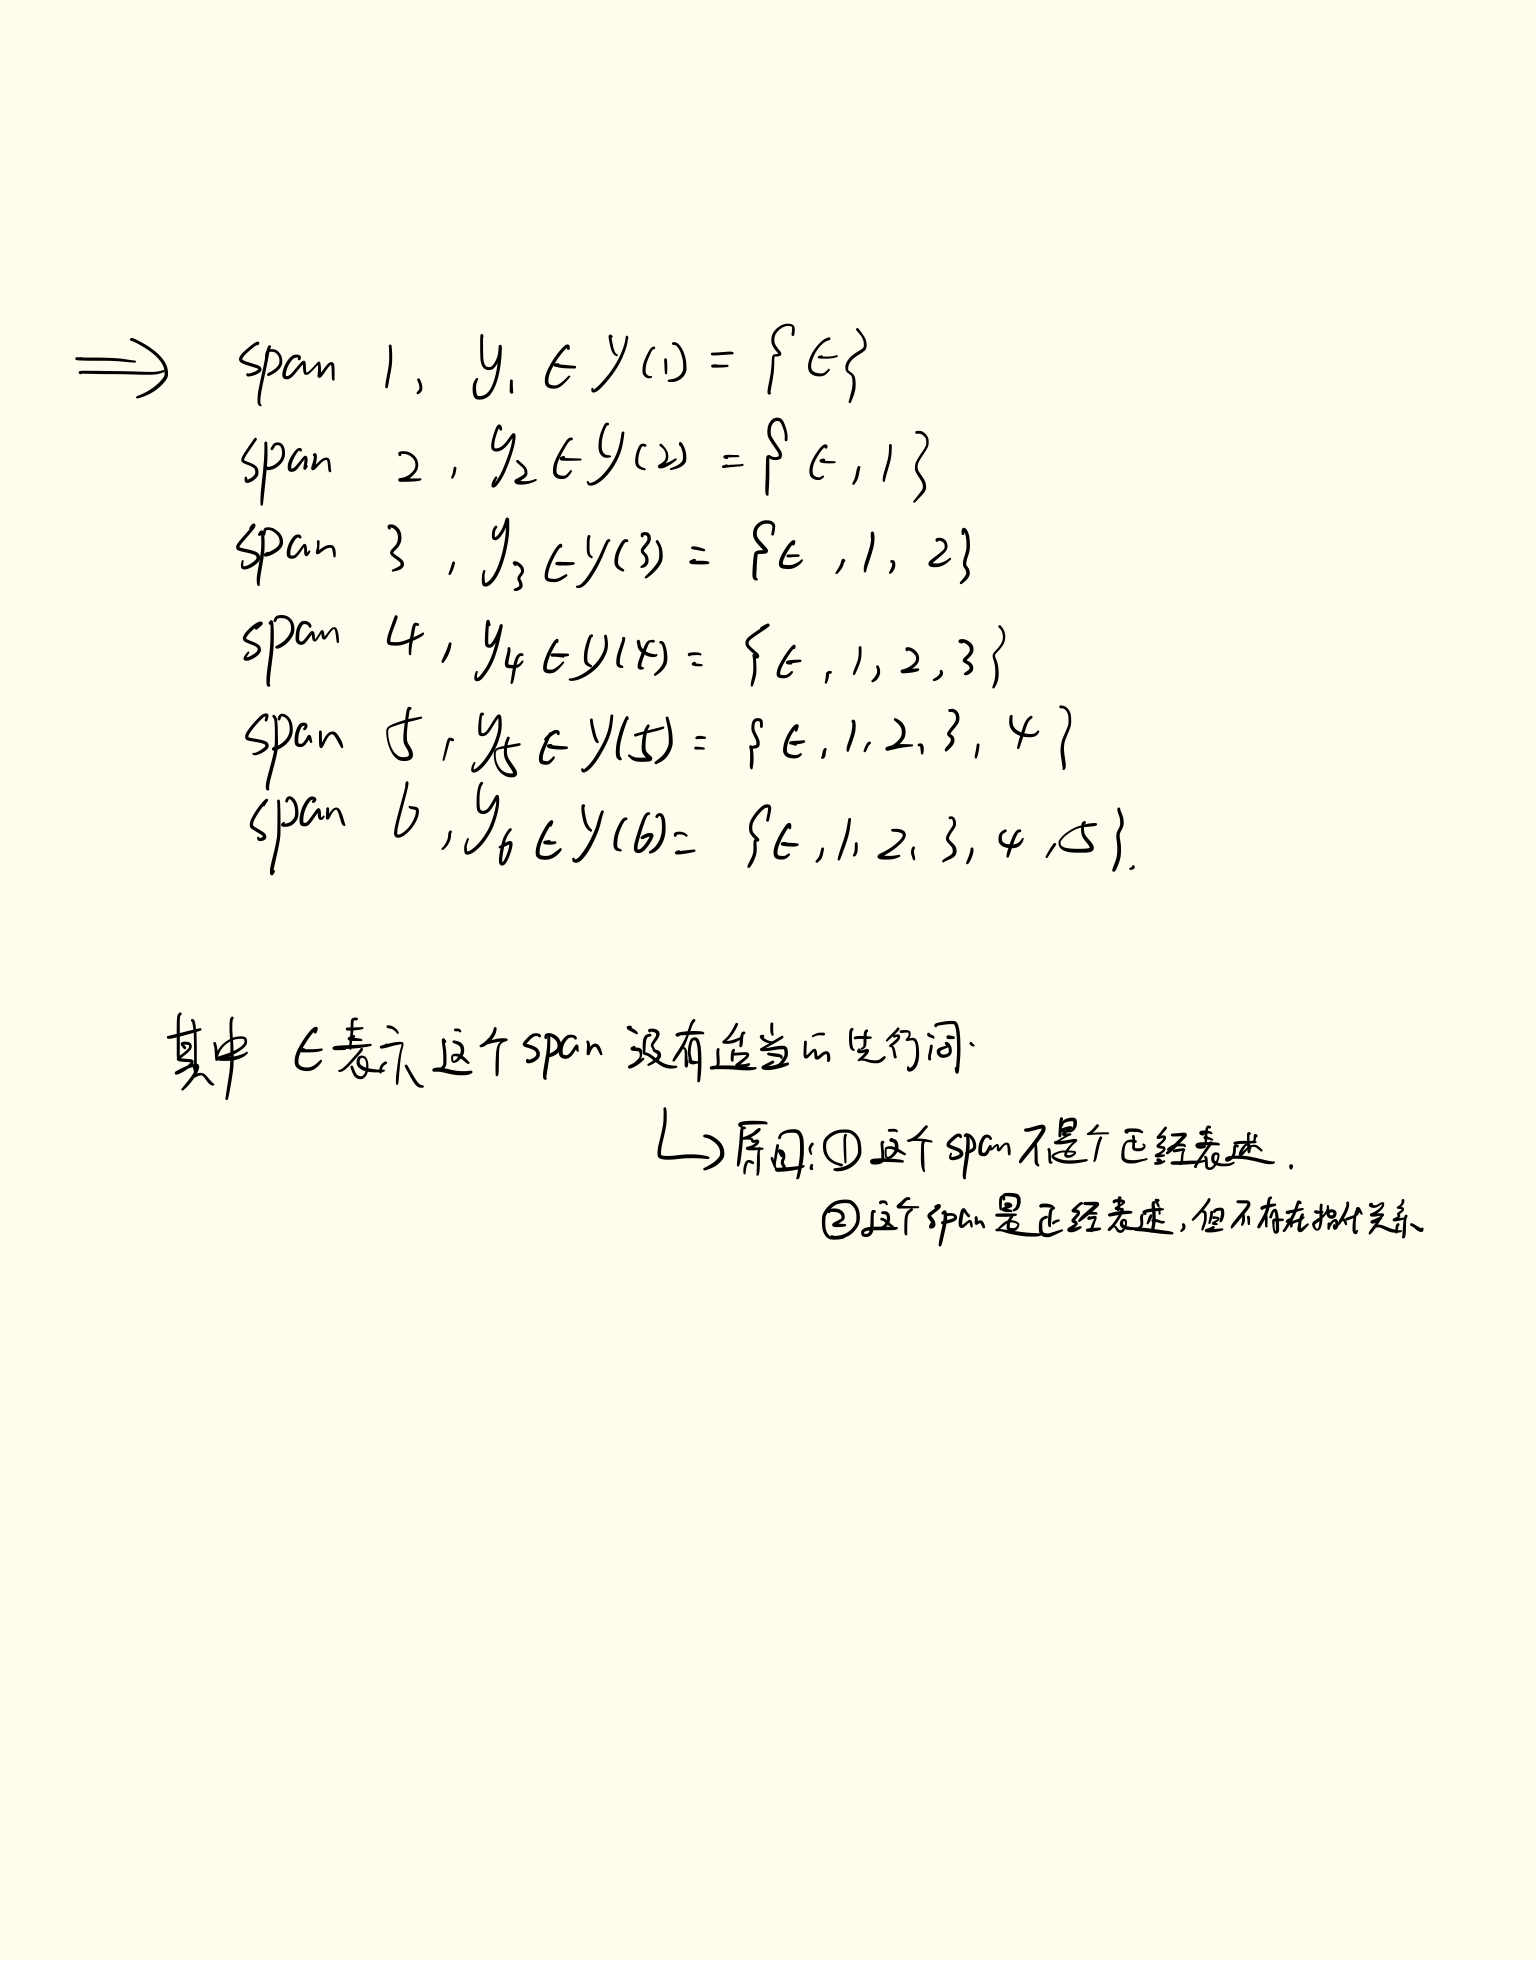 ⇒ span 1, y₁ ∈ Y(1) = {ϵ}
span 2, y₂ ∈ Y(2) = {ϵ, 1}
span 3, y₃ ∈ Y(3) = {ϵ, 1, 2}
span 4, y₄ ∈ Y(4) = {ϵ, 1, 2, 3}
span 5, y₅ ∈ Y(5) = {ϵ, 1, 2, 3, 4}
span 6, y₆ ∈ Y(6) = {ϵ, 1, 2, 3, 4, 5}.
其中 ϵ表示这个span 没有适当的先行词.
↳原因:①这个span不是个正经表述.
②这个span是正经表述,但不存在指代关系